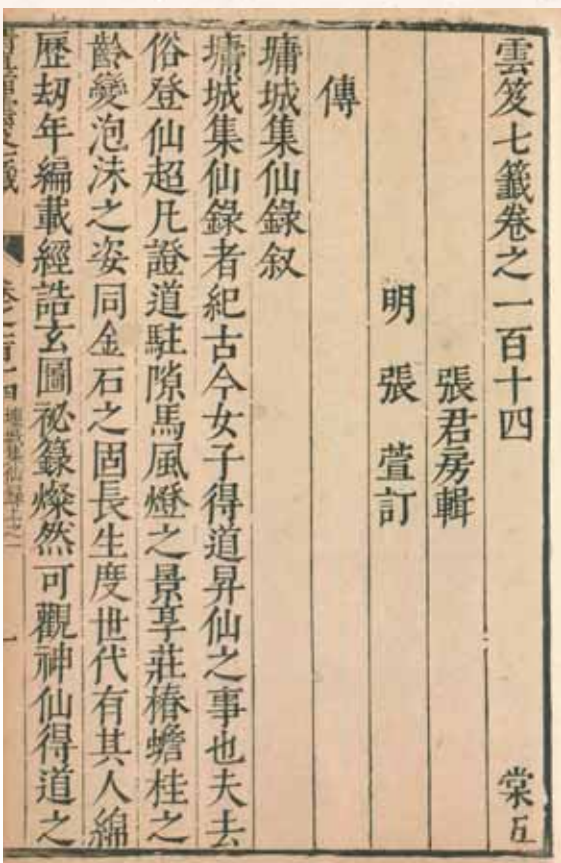 雲笈七籤卷之一百十四
棠五
張君房輯
明 張萱訂
傳
墉城集仙錄叙
墉城集仙錄者紀古今女子得道昇仙之事也夫去
俗登仙超凡證道駐隙馬風燈之景享莊椿蟾桂之
齡變泡沫之姿同金石之固長生度世代有其人綿
歷劫年編載經誥玄圖祕籙燦然可觀神仙得道之
卷之一百十四 墉城集仙錄 一